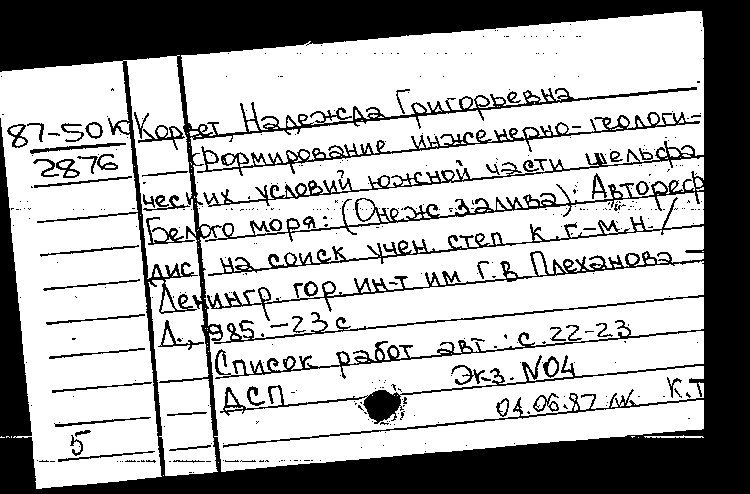 87-50К
2876
Корвет, Надежда Григорьевна
Формирование инженерно-геологи-
ческих условий южной части шельфа
Белого моря: (Онеж. залива): Автореф
дис. на соиск учен. степ к.г.-м.н. /
Ленингр. гор. ин-т им Г.В Плеханова —
Л., 1985. — 23 с.
Список работ авт.: с. 22-23
ДСП Экз. №04
04.06.87 К.Т
5